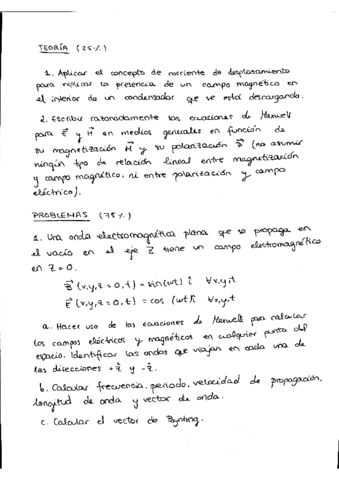 TEORÍA (25%)
1. Aplicar el concepto de corriente de desplazamiento
para explicar la presencia de un campo magnético en
el interior de un condensador que se está descargando.
2. Escribir razonadamente las ecuaciones de Maxwell
para E⃗ y H⃗ en medios generales en función de
su magnetización M⃗ y su polarización P⃗ (no asumir
ningún tipo de relación lineal entre magnetización
y campo magnético, ni entre polarización y campo
eléctrico).
PROBLEMAS (75%)
1. Una onda electromagnética plana que se propaga en
el vacío en el eje Z tiene un campo electromagnético
en Z = 0.
B⃗ (x,y,z=0,t) = sin(wt) î ∀x,y,t
E⃗ (x,y,z=0,t) = cos(wt) î ∀x,y,t
a. Hacer uso de las ecuaciones de Maxwell para calcular
los campos eléctricos y magnéticos en cualquier punto del
espacio. Identificar las ondas que viajan en cada una de
las direcciones +ẑ y -ẑ.
b. Calcular frecuencia, periodo, velocidad de propagación,
longitud de onda y vector de onda.
c. Calcular el vector de Poynting.